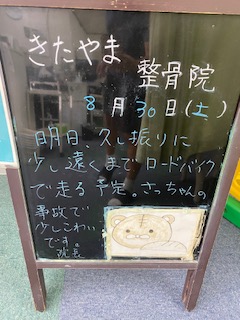 きたやま
整骨院
8月30日(土)
明日、久し振りに
少し遠くまでロードバイク
で走る予定。さっちゃんの
事故で
少しこわい
です。
院長